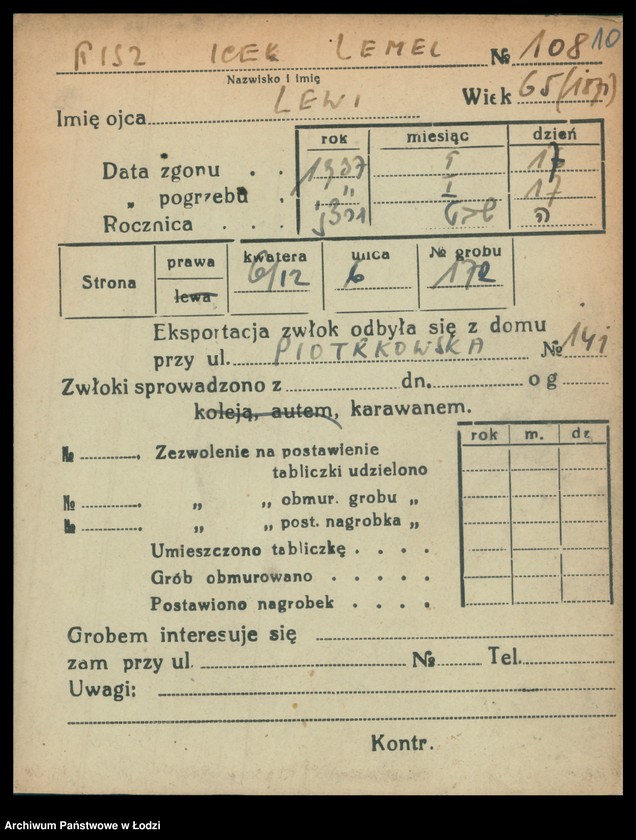 FISZ ICEK LEMEL № 10810
Nazwisko i imię
Imię ojca LEWI Wiek 65
rok miesiąc dzień
Data zgonu . . 1937 I 17
„ pogrzebu . „ I 17
Rocznica . . .
Strona prawa lewa kwatera 6/12 ulica 6 № grobu 172
Eksportacja zwłok odbyła się z domu
przy ul. PIOTRKOWSKA № 141
Zwłoki sprowadzono z dn. o g
koleją, autem, karawanem.
rok m. dz
№ . Zezwolenie na postawienie
tabliczki udzielono
№ . „ „ obmur. grobu „
№ . „ „ post. nagrobka „
Umieszczono tabliczkę . . . .
Grób obmurowano . . . . .
Postawiono nagrobek . . . .
Grobem interesuje się
zam przy ul. № Tel.
Uwagi:
Kontr.
Archiwum Państwowe w Łodzi